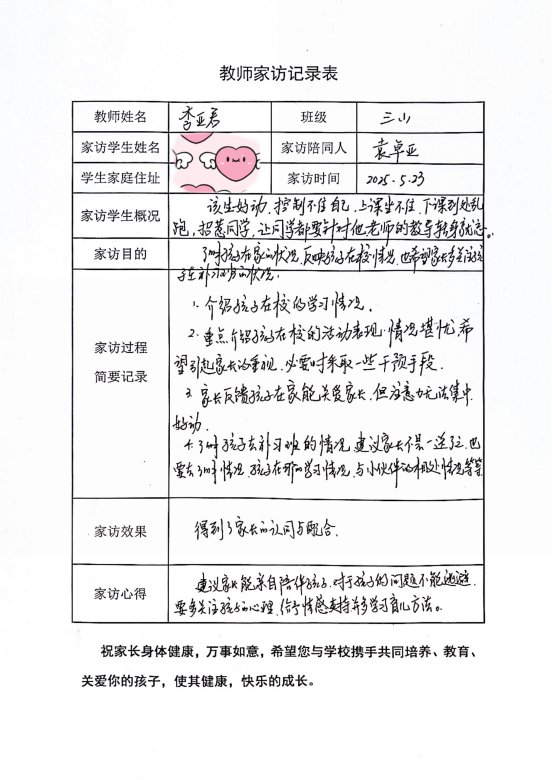 教师家访记录表
教师姓名 李亚君 班级 三山
家访学生姓名 家访陪同人 袁卓亚
学生家庭住址 家访时间 2025.5.23
家访学生概况 该生好动,控制不住自己,上课坐不住,下课到处乱
跑,招惹同学,让同学都要针对他老师的教导转身就忘。
家访目的 了解孩子在家的状况,反映孩子在校情况,也希望家长多关注孩
子在补习班的状况。
家访过程
简要记录
1. 介绍孩子在校的学习情况。
2. 重点介绍孩子在校的活动表现,情况堪忧,希
望引起家长的重视,必要时采取一些干预手段。
3. 家长反馈孩子在家能关爱家长,但注意力无法集中
好动。
4. 了解孩子去补习班的情况,建议家长不是一送了,也
要去了解情况,孩子在那的学习情况,与小伙伴的相处情况等等
家访效果 得到了家长的认同与配合。
家访心得 建议家长能亲自陪伴孩子,对于孩子的问题不能逃避,
要多关注孩子的心理,给予情感支持并多学习育儿方法。
祝家长身体健康,万事如意,希望您与学校携手共同培养、教育、
关爱你的孩子,使其健康,快乐的成长。